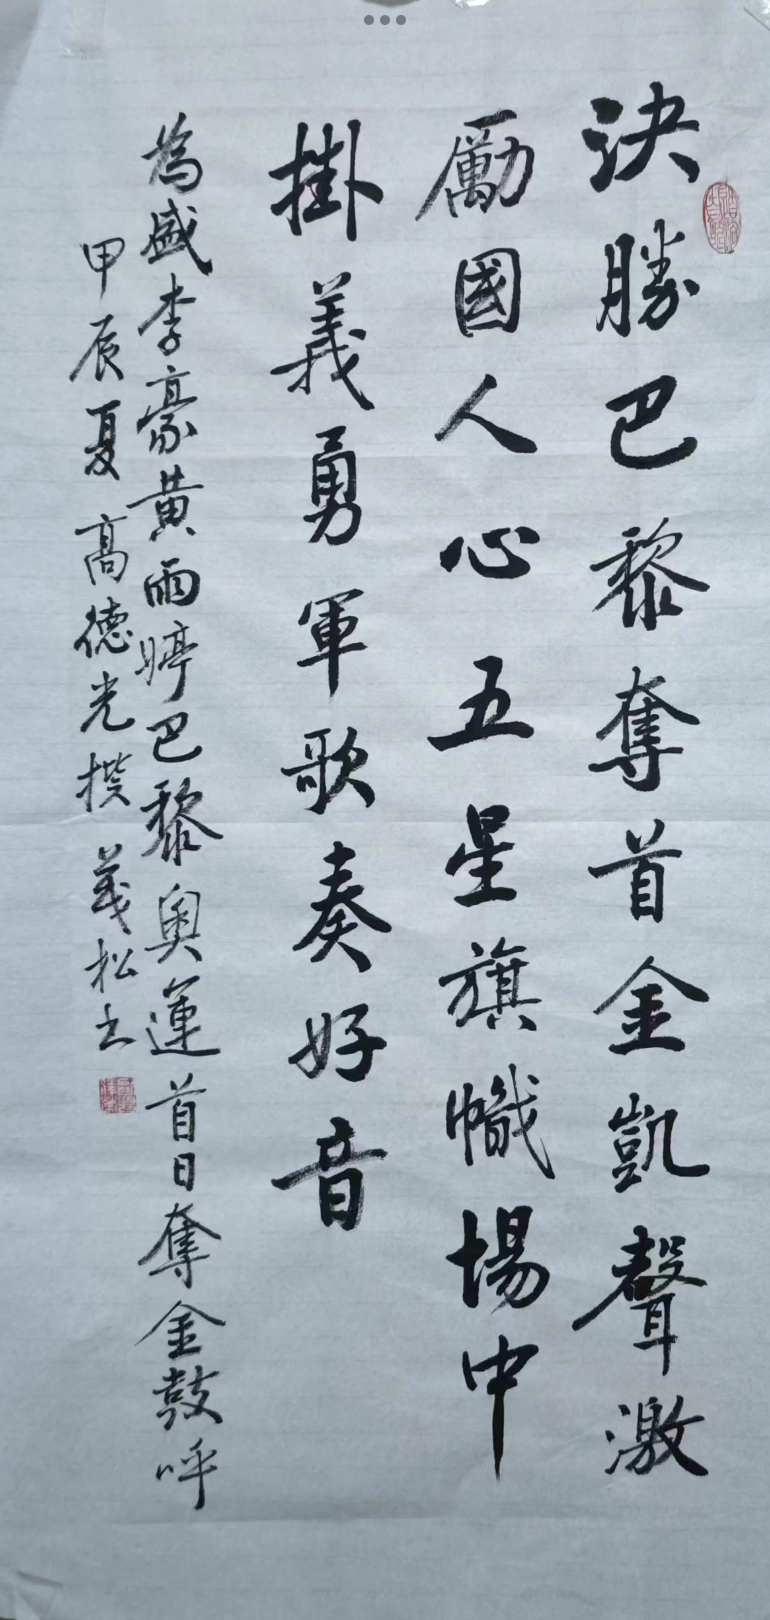 決勝巴黎奪首金凱聲激
勵國人心五星旗幟場中
掛義勇軍歌奏好音
為盛李豪黃雨婷巴黎奧運首日奪金鼓呼
甲辰夏高德光撰義松书